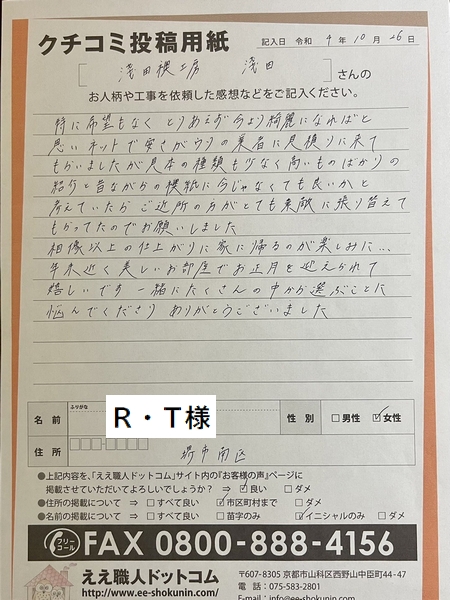 クチコミ投稿用紙
記入日 令和 4 年 10 月 26 日
浅田襖工房 浅田 さんの
お人柄や工事を依頼した感想などをご記入ください。
特に希望もなく とりあえず今より綺麗になればと
思い ネットで安さがウリの業者に見積りに来て
もらいましたが見本の種類も少なく高いものばかりの
紹介と昔ながらの襖紙に今じゃなくても良いかと
考えていたら ご近所の方がとても素敵に張り替えて
もらってたのでお願いしました
想像以上の仕上がりに家に帰るのが楽しみに…
年末近く美しいお部屋でお正月を迎えられて
嬉しいです 一緒にたくさんの中から選ぶことに
悩んでくださり ありがとうございました
ふりがな
名前 R・T様 性別 □男性 ☑女性
住所 堺市南区
●上記内容を、「ええ職人ドットコム」サイト内の『お客様の声』ページに
掲載させていただいてよろしいでしょうか? ⇒ ☑良い □ダメ
●住所の掲載について ⇒ □すべて良い ☑市区町村まで □ダメ
●名前の掲載について ⇒ □すべて良い □苗字のみ ☑イニシャルのみ □ダメ
フリーコール FAX 0800-888-4156
ええ職人ドットコム
http://www.ee-shokunin.com/
〒607-8305 京都市山科区西野山中臣町44-47
電話:075-583-2801
E-mail:info@ee-shokunin.com